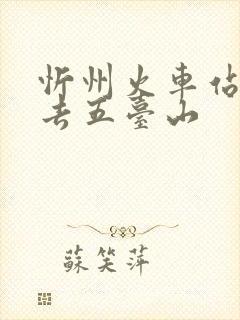 忻州火車佔
去五臺山
蘇笑萍